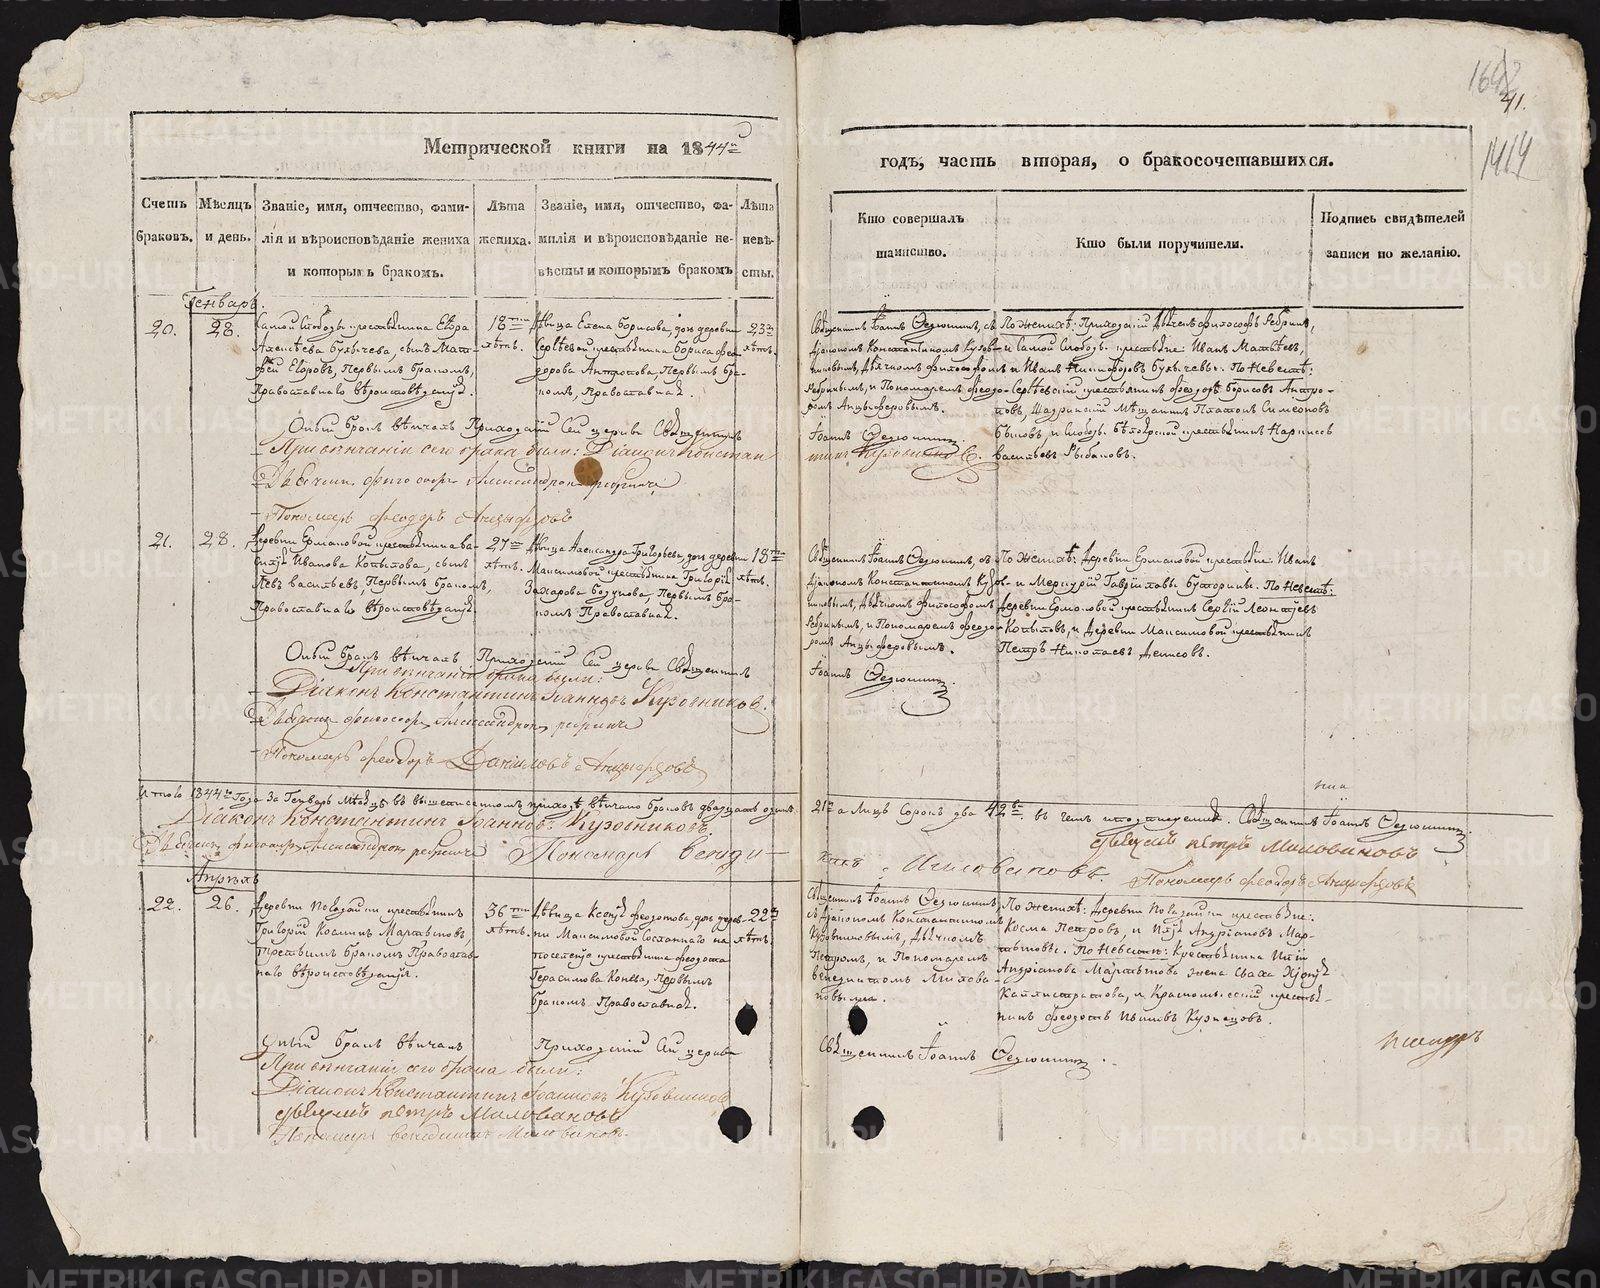 1642
41.
1414
Метрической книги на 1844й
годъ, часть вторая, о бракосочетавшихся.
Счетъ браковъ.
Мѣсяцъ и день.
Званіе, имя, отчество, фами-
лія и вѣроисповѣданіе жениха
и которымъ бракомъ.
Лѣта
жениха.
Званіе, имя, отчество, фа-
милія и вѣроисповѣданіе не-
вѣсты и которымъ бракомъ
Лѣта
невѣ-
сты.
Кто совершалъ
таинство.
Кто были поручители.
Подпись свидѣтелей
записи по желанію.
Генварь.
20.
28.
Самой Слободы крестьянина Егора
Алексѣева Бухычева, сынъ Мат-
фей Егоровъ, Первымъ бракомъ,
Православнаго вѣроисповѣданія.
18ти
лѣтъ.
Дѣвица Елена Борисова, дочь деревни
Сергѣевой крестьянина Бориса Фео-
дорова Антропова, Первымъ бра-
комъ, Православная.
23хъ
лѣтъ.
Священникъ Іоаннъ Оедюшинъ, съ
Діакономъ Константиномъ Кузов-
никовымъ, Дьячкомъ философомъ
Ребринымъ, и Пономаремъ Феодо-
ромъ Анцыферовымъ.
По женихѣ: Приходскій Дьячекъ философъ Ребринъ,
и Самой Слободы крестьяне: Иванъ Матвѣевъ,
и Иванъ Никифоровъ Бухычевы. По Невестѣ:
Сергѣевскій крестьянинъ Феодоръ Борисовъ Антро-
повъ, Шадринскій Мѣщанинъ Платонъ Симеоновъ
Быковъ, и Слободы Бѣлоярской крестьянинъ Наркисъ
Васильевъ Рыбаковъ.
Оный бракъ вѣнчалъ Приходскій Сей церкви Священникъ
Іоаннъ Оедюшинъ.
При вѣнчаніи сего брака были: Діаконъ Констан
тинъ Кузовниковъ.
Дьячекъ философъ Александровъ Ребринъ
Пономарь Феодоръ Анцыферовъ
21.
28.
Деревни Ермаковой крестьянина Ва-
силія Иванова Копылова, сынъ
Левъ Васильевъ, Первымъ бракомъ,
Православнаго вѣроисповѣданія.
27ми
лѣтъ.
Дѣвица Александра Григорьева, дочь деревни
Максимовой крестьянина Григорія
Захарова Бодунова, Первымъ бра-
комъ Православная.
18ти
лѣтъ.
Священникъ Іоаннъ Оедюшинъ, съ
Діакономъ Константиномъ Кузов-
никовымъ, Дьячкомъ философомъ
Ребринымъ, и Пономаремъ Феодо-
ромъ Анцыферовымъ.
По женихѣ: Деревни Ермаковой крестьяне: Иванъ
и Меркурій Гавриловы Буторины. По Невестѣ:
Деревни Ермаковой крестьянинъ Сергѣй Леонтьевъ
Копыловъ, и Деревни Максимовой крестьянинъ
Петръ Николаевъ Денисовъ.
Оный бракъ вѣнчалъ Приходскій Сей церкви Священникъ
Іоаннъ Оедюшинъ.
При вѣнчаніи брака были:
Діаконъ Константинъ Іоанновъ Кузовниковъ.
Дьячекъ философъ Александровъ Ребринъ
Пономарь Феодоръ Даниловъ Анцыферовъ
Итого 1844го Года За Генварь Мѣсяцъ въ вышеписанномъ приходѣ вѣнчано браковъ двадцать одинъ
21нъ а Лицъ Сорокъ два 42ва въ чемъ и подписуемся. Священникъ Іоаннъ Оедюшинъ.
Діаконъ Константинъ Іоанновъ Кузовниковъ.
Дьячекъ Петръ Миловановъ
Дьячекъ философъ Александровъ Ребринъ
Пономарь Венеди-
ктъ Миловановъ.
Пономарь Феодоръ Анцыферовъ
Апрѣль
22.
26.
Григорій Козминъ Мартьяновъ,
Третьимъ бракомъ Православ-
наго вѣроисповѣданія.
36ти
лѣтъ.
Дѣвица Ксенія Феодотова, дочь дерев-
ни Максимовой Сосланнаго на
поселеніе крестьянина Феодота
Герасимова Конева, Первымъ
бракомъ Православная.
22хъ
лѣтъ.
Священникъ Іоаннъ Оедюшинъ,
съ Діакономъ Константиномъ
Кузовниковымъ, Дьячкомъ
Петромъ, и Пономаремъ
Венедиктомъ Милова-
новыми.
Косма Петровъ, и Илія Андріановъ Мар-
тьяновы. По Невестѣ: Крестьянина Иліи
Андріанова Мартьянова жена Сваха Ксенія
Каллистратова, и Красноярскій крестья-
нинъ Феодотъ Ивановъ Кузнецовъ.
Оный бракъ вѣнчалъ Приходскій Сей церкви
Священникъ Іоаннъ Оедюшинъ.
При вѣнчаніи сего брака были:
Діаконъ Константинъ Іоанновъ Кузовниковъ
Дьячекъ Петръ Миловановъ
Пономарь Венедиктъ Миловановъ.
METRIKI.GASO-URAL.RU